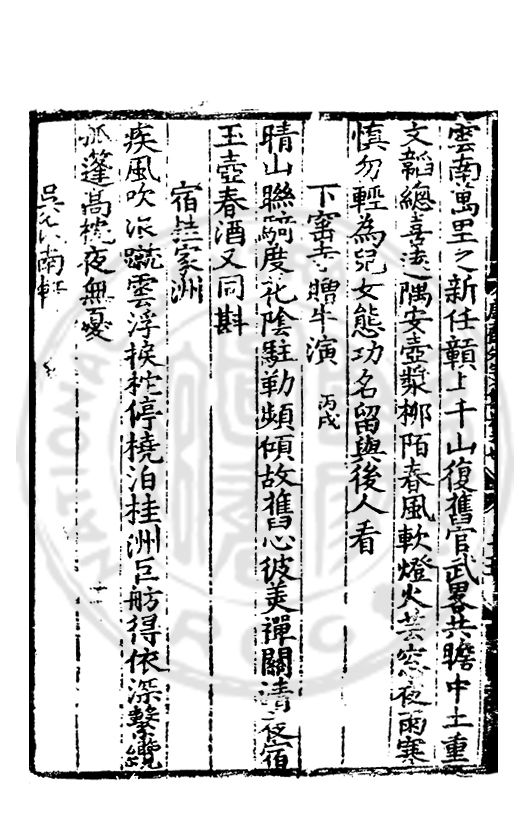 雲南萬里之新任贛上千山復舊官武畧共瞻中土重
文韜總喜遠隅安壺漿柳陌春風軟燈火芸窓夜雨寒
慎勿輕為兒女態功名留與後人看
下寺贈牛演 丙戌
晴山聯騎度花陰駐勒頻傾故舊心彼美禪關清夜宿
玉壺春酒又同斟
宿桂家洲
疾風吹浪蹴雲浮捩柁停橈泊桂洲巨舫得依深繫纜
孤篷高枕夜無憂
吳氏南軒